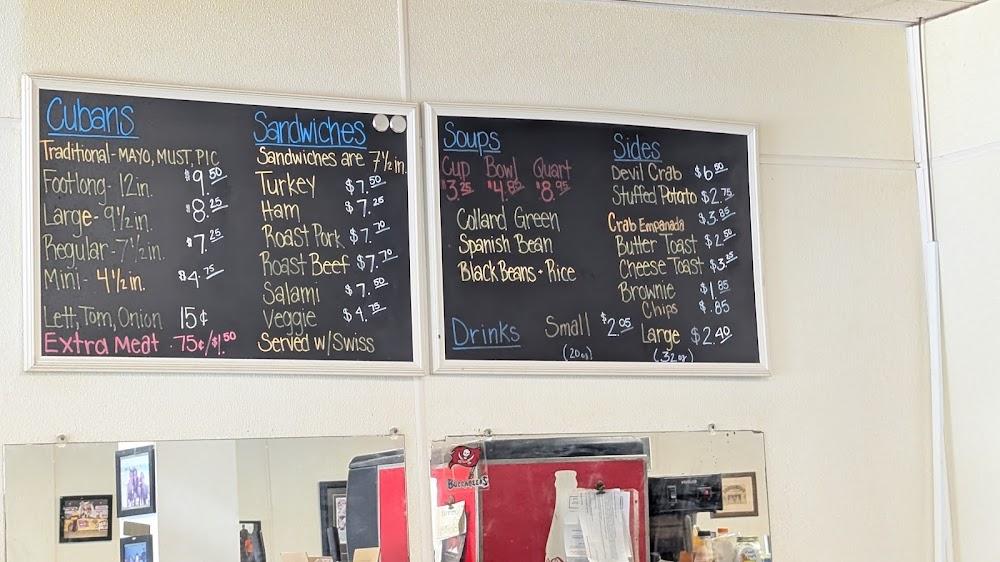 Cubans
Traditional - MAYO, MUST, PIC
Footlong - 12in. $9.50
Large - 9½in. $8.25
Regular - 7½in. $7.25
Mini - 4½in. $4.75
Lett, Tom, Onion 15¢
Extra Meat .75¢/$1.50
Sandwiches
Sandwiches are 7½ in.
Turkey $7.50
Ham $7.25
Roast Pork $7.70
Roast Beef $7.70
Salami $7.50
Veggie $4.75
Served w/Swiss
Soups
Cup Bowl Quart
$3.25 $4.85 $8.95
Collard Green
Spanish Bean
Black Beans + Rice
Sides
Devil Crab $6.50
Stuffed Potato $2.75
Crab Empanada $3.85
Butter Toast $2.50
Cheese Toast $3.25
Brownie $1.85
Chips $.85
Drinks Small $2.05 Large $2.40
(20oz) (32oz)
BUCCANEERS